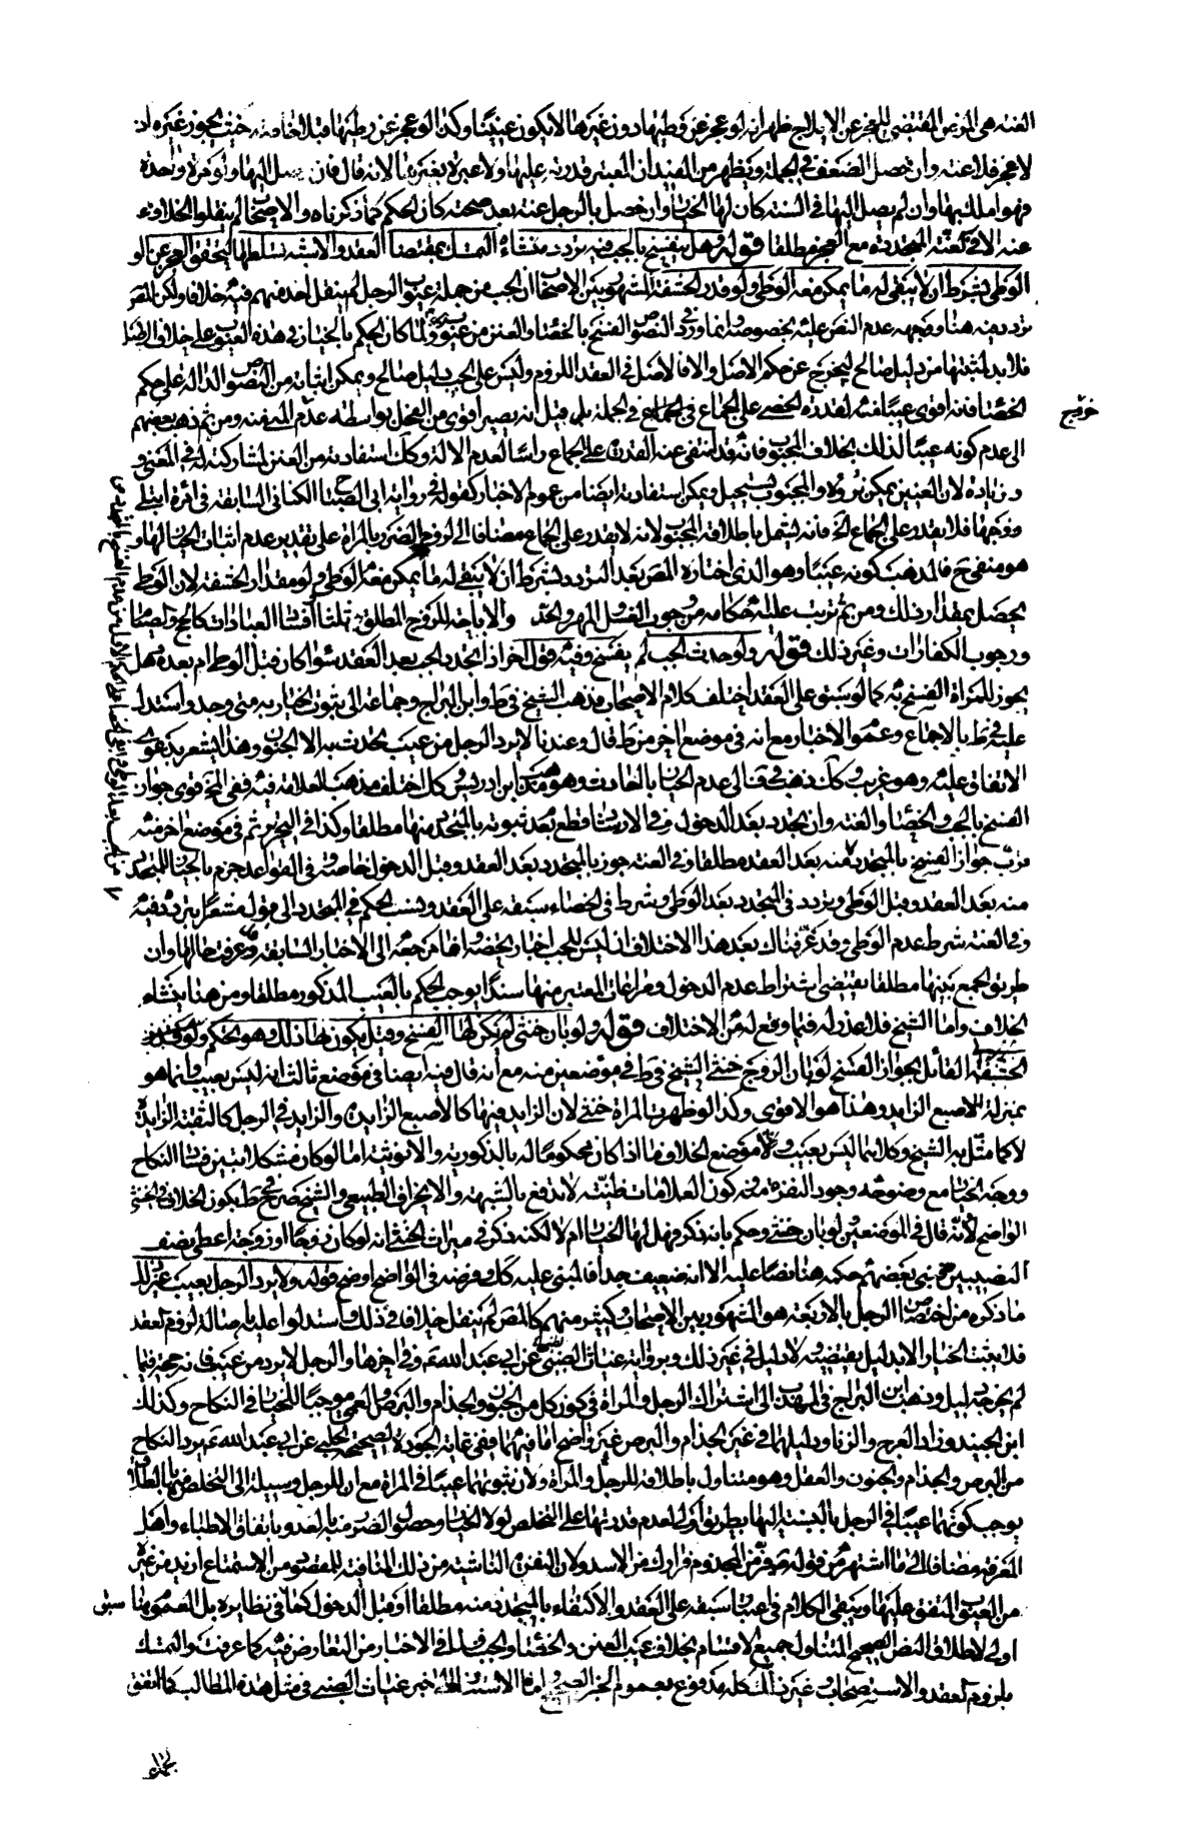 العنه هى المرض المقتضى للعجز عن الايلاج ظهر انه لو عجز عن وطئها دون غيرها لا يكون عنينا وكذا لو عجز عن وطئها قبلا خاصة حيث يجوز غيره اذ
لا عجز فلا عنه وان حصل الضعف فى الجملة ويظهر من المفيد ان المعتبر قدرته عليها ولا عبرة بغيرها لانه قال فان وصل اليها ولو مرة واحدة
فهو املك بها وان لم يصل اليها فى السنة كان لها الخيار وان حصل بالرجل عنه بعد صحته كان الحكم كما ذكرناه والاصحاب لم ينقلوا الخلاف
عنه الا فى العنه المتجددة مع العجز مطلقا قوله وهل يفسخ بالجب فيه تردد منشاؤه التمسك بمقتضى العقد والاشبه تسلطها لتحقق العجز عن الو
الوطى بشرط ان لا يبقى له ما يمكن معه الوطى ولو قدر الحشفة المشهور بين الاصحاب ان الجب من جملة عيوب الرجل لم ينقل احد منهم فيه خلافا ولكن المصر
تردد فيه هنا ووجهه عدم النص عليه بخصوصه وانما ورد النصوص الفسخ بالخصاء والعنن من عيوبه ولما كان الحكم بالخيار فى هذه العيوب على خلاف الاصل
فلا بد لمثبتها من دليل صالح ليخرج عن حكم الاصل والا فالاصل فى العقد اللزوم وليس على الجب دليل صالح ويمكن اثباته من النصوص الدالة على حكم
الخصاء فانه اقوى عيبا منه لقدرة الخصى على الجماع فى الجملة بل قيل انه يصير اقوى من الفحل بواسطة عدم المنى منه ومن ثم ذهب بعضهم
الى عدم كونه عيبا لذلك بخلاف المجبوب فانه قد انتفى عنه القدرة على الجماع راسا لعدم الالة وكذا استفادته من العنن لمشاركته له فى المعنى و
زيادة لان العنين يمكن برؤه والمجبوب يستحيل ويمكن استفادته ايضا من عموم الاخبار كقوله فى رواية ابى الصباح الكنانى السابقة فى امرأة ابتلى
زوجها فلا يقدر على الجماع الخ فانه يشتمل باطلاقه المجبوب لانه لا يقدر على الجماع مضافا الى لزوم الضرر بالمراة على تقدير عدم اثبات الخيار لها و
هو منفى ح فالمذهب كونه عيبا وهو الذى اختاره المصر بعد التردد لشرط ان لا يبقى له ما يمكن معه الوطى ولو مقدار الحشفة لان الوطى
يحصل بمقدار ذلك ومن ثم ترتب عليه احكامه من وجوب الغسل والمهر والحد والاباحة للزوج المطلق ثلثا وافساد العبادات كالحج والصيام
ووجوب الكفارات وغير ذلك قوله ولو حدث الجب لم يفسخ وفيه قول اخر اذا تجدد الجب بعد العقد سواء كان قبل الوطى ام بعده هل
يجوز للمراة الفسخ به كما لو سبق على العقد اختلف كلام الاصحاب فذهب الشيخ فى ط وابن البراج وجماعة الى ثبوت الخيار به متى وجد واستدل
عليه فى ط بالاجماع وعموم الاخبار مع انه فى موضع اخر من ط قال وعندنا لا يرد الرجل من عيب يحدث به الا الجنون وهذا يشعر بدعوى
الاتفاق عليه وهو غريب وكذلك ذهب فى ف الى عدم الخيار بالحادث وهو مذهب ابن ادريس وكذا اختلف مذهب العلامة فيه ففى المخ قوى جواز
الفسخ بالجب والخصاء والعنه وان تجدد بعد الدخول وفى الارشاد قطع بعد ثبوته بالمتجدد منها مطلقا وكذا فى التحرير ثم فى موضع اخر منه
قرب جواز الفسخ بالمتجدد منه بعد العقد مطلقا وفى العنه جوز بالمتجدد بعد العقد وقبل الدخول خاصة وفى القواعد جزم بالخيار بالمتجدد
منه بعد العقد وقبل الوطى وتردد فى المتجدد بعد الوطى وشرط فى الخصاء سبقه على العقد ونسب الحكم فى المتجدد الى قول مشعرا بتردده فيه
وفى العنه شرط عدم الوطى وقد عرفناك بعد هذا الاختلاف ان ليس للجب اخبار تخصه وانما مرجعه الى الاخبار السابقة وقد عرفت حالها وان
طريق الجمع بينها مطلقا يقتضى اشتراط عدم الدخول ومراعاة المعتبر منها سندا يوجب الحكم بالعيب المذكور مطلقا ومن هنا ينشاء
الخلاف واما الشيخ فلا عذر له فيما وقع له من الاختلاف قوله ولو بان خنثى لم يكن لها الفسخ وقيل يكون لها ذلك وهو تحكم
القائل بجواز الفسخ لو بان الزوج خنثى الشيخ فى ط فى موضعين منه مع انه قال فيه ايضا فى موضع ثالث انه ليس بعيب وانما هو
بمنزلة الاصبع الزايد وهذا هو الاقوى وكذا لو ظهرت المراة خنثى لان الزايد فيها كالاصبع الزايدة والزايد فى الرجل كالثقبة الزايدة
لا كما مثل به الشيخ وكلاهما ليس بعيب وموضع الخلاف ما اذا كان محكوما له بالذكورية والانوثية اما لو كان مشكلا تبين فساد النكاح
ووجه الخيار مع وضوحه وجود النفرة منه وكون العلامات ظنية لا تدفع بالشبهة والانحراف الطبيعى والشيخ صرح فى ط بكون الخلاف فى الخنثى
الواضح لانه قال فى الموضعين لو بان خنثى وحكم بانه ذكر فهل لها الخيار ام لا لكنه ذكر فى ميراث الخنثى انه لو كان زوجا او زوجة اعطى نصف
النصيبين فبنى بعضهم حكمه هنا بناء عليه الا انه ضعيف جدا فالمبنى عليه كذلك وفرضه فى الواضح اوضح قوله ولا يرد الرجل بعيب غير ذلك
ما ذكره من اختصاص الرجل بالاربعة هو المشهور بين الاصحاب وكثير منهم كالمصر لم ينقل خلافا فى ذلك واستدلوا عليه باصالة لزوم العقد
فلا يثبت الخيار الا بدليل يقتضيه ولا دليل فى غير ذلك وبرواية غياث الضبى عن ابى عبد الله عم وفى اخرها والرجل لا يرد من عيب فانه حجة فيما
لم يخرجه دليل وذهب ابن البراج فى المهذب الى اشتراك الرجل والمراة فى كون كل من الجنون والجذام والبرص والعمى موجبا للخيار فى النكاح وكذلك
ابن الجنيد وزاد العرج والزنا ودليلهما فى غير الجذام والبرص غير واضح اما فيهما ففى غاية الجودة لصحيحة الحلبى عن ابى عبد الله عم يرد النكاح
من البرص والجذام والجنون والعفل وهو متناول باطلاقه للرجل والمراة ولان ثبوتهما عيبا فى المراة مع ان للرجل وسيلة الى التخلص منها بالطلاق
يوجب كونهما عيبا فى الرجل بالنسبة اليها بطريق اولى لعدم قدرتها على التخلص لولا الخيار وحصول الضرر منه بالعدوى باتفاق الاطباء واهل
المعرفة مضافا الى ما اشتهر من قوله ص فر من المجذوم فرارك من الاسد ولان النفرة الناشئة من ذلك المنافية للمقصود من الاستمتاع ازيد من غيره
من العيوب المتفق عليها ويبقى الكلام فى اعتبار سبقه على العقد والاكتفاء بالمتجدد منه مطلقا او قبل الدخول كما فى نظايره بل القول بهما
اولى لاطلاق النص الصحيح المتناول لجميع الاقسام بخلاف عيب العنن والخصاء والجب لما فى الاخبار من التعارض فيه كما عرفت والتمسك
بلزوم العقد والاستصحاب وغير ذلك كله مدفوع بعموم الخبر الصحيح اما الاستناد الى خبر غياث الضبى فى مثل هذه المطالب كما اتفق